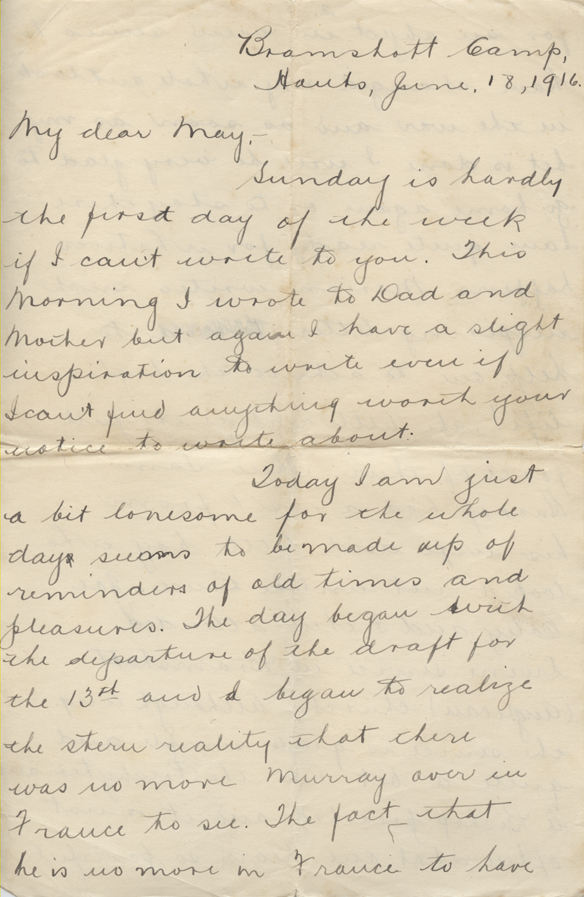 Bramshott Camp,
Hants, June, 18, 1916.
My dear May,-
Sunday is hardly
the first day of the week
if I can't write to you. This
Morning I wrote to Dad and
Mother but again I have a slight
inspiration to write even if
I can't find anything worth your
notice to write about.
Today I am just
a bit lonesome for the whole
day seems to be made up of
reminders of old times and
pleasures. The day began with
the departure of the draft for
the 13st and I began to realize
the stern reality that there
was no more Murray over in
France to see. The fact that
he is no more in France to have